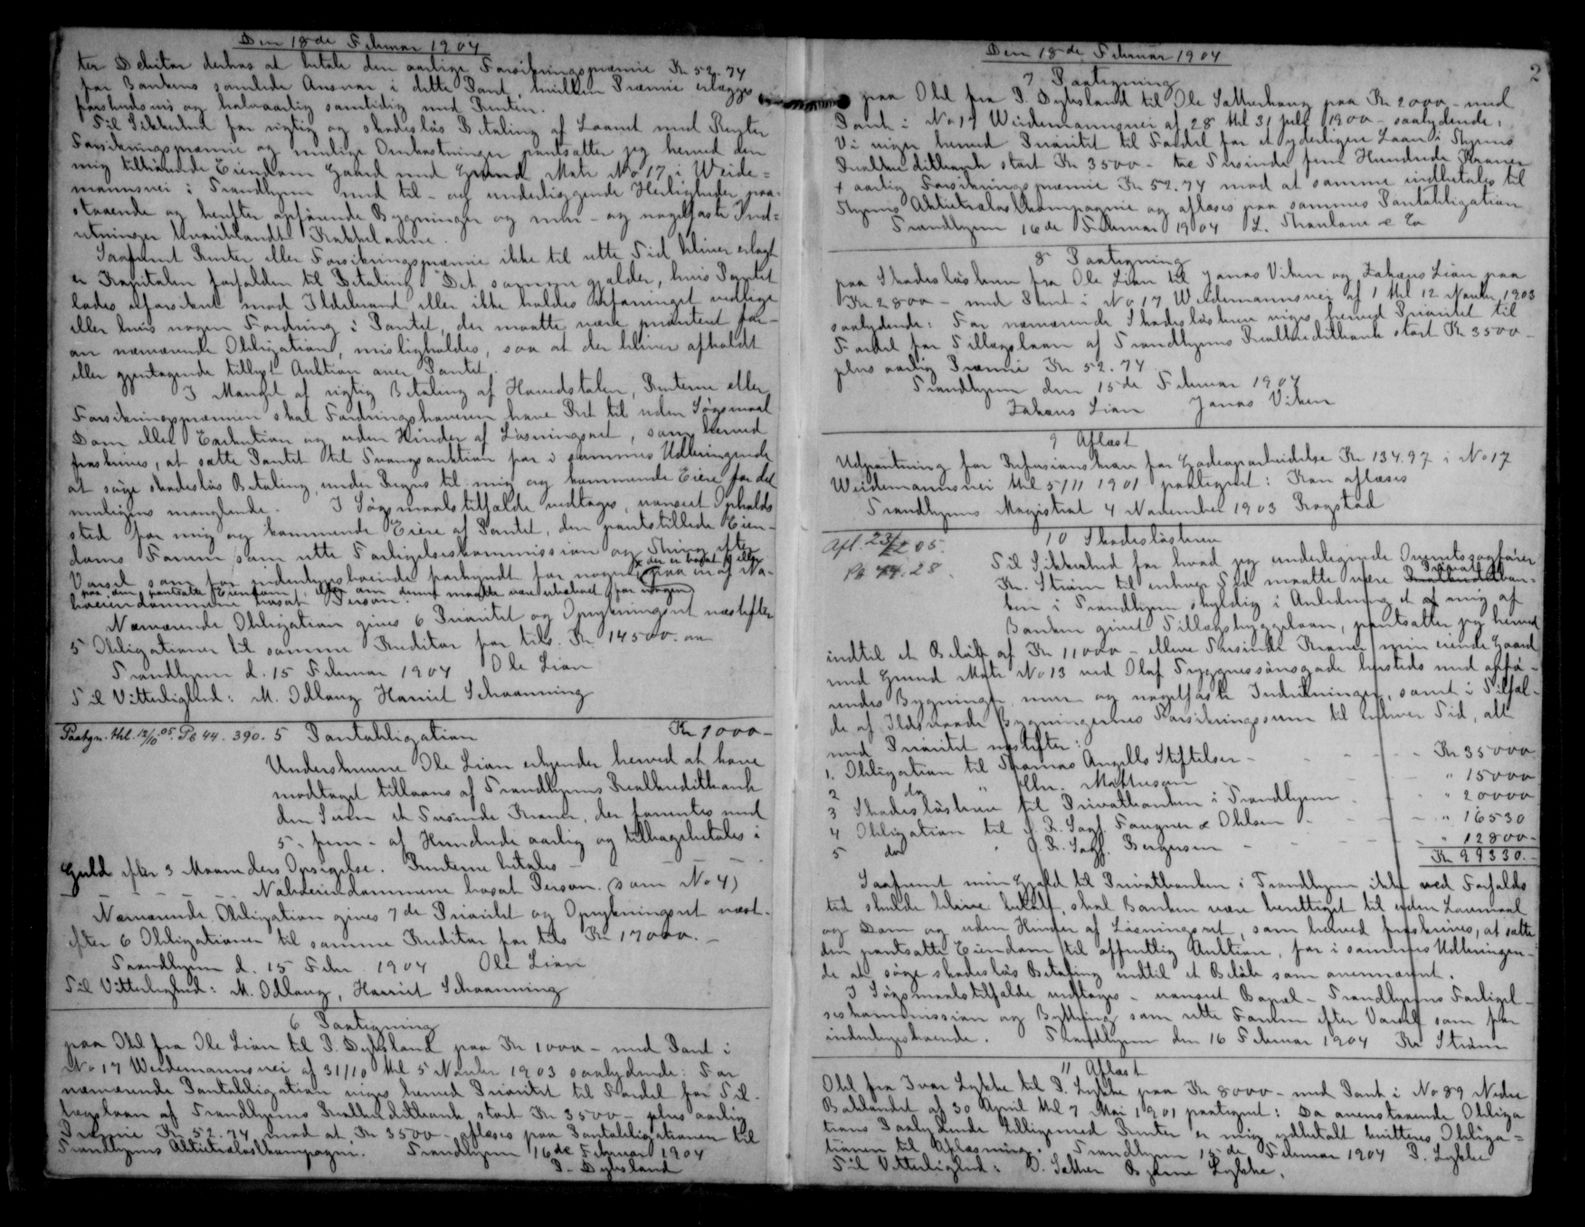 Den 18de Februar 1904
ter Debitor derhos at betale den aarlige Forsikringspræmie Kr 52.74
for Bankens samlede Ansvar i dette Pant, hvilken Præmie erlægges
forskudsvis og halvaarlig samtidig med Renten.
Til Sikkerhed for rigtig og skadesløs Betaling af Laanet med Renter
Forsikringspræmie og mulige Omkostninger pantsætter jeg herved den
mig tilhørende Eiendom Gaard med Grund Matr No 17 i Weide=
mannsvei i Trondhjem med til- og underliggende Herligheder, paa-
staaende og herefter opførende Bygninger og mur- og nagelfaste Ind=
retninger hvoriblandt Kakkelovne.
Saafremt Renter eller Forsikringspræmie ikke til rette Tid bliver erlagt
er Kapitalen forfalden til Betaling. Det samme gjælder, hvis Pantet
lades uforsikret mod Ildebrand eller ikke holdes forsvarligt vedlige
eller hvis nogen Fordring i Pantet, der maatte være prioriteret for-
an nærværende Obligation, misligholdes, saa at der bliver afholdt
eller gjentagende tillyst Auktion over Pantet.
I Mangel af rigtig Betaling af Hovedstolen, Renterne eller
Forsikringspræmien skal Fordringshaveren have Ret til uden Søgsmaal
Dom eller Exekution og uden Hinder af Løsningsret, som herved
fraskrives, at sætte Pantet til Tvangsauktion for i sammes Udbringende
at søge skadesløs Betaling, under Regres til mig og kommende Eiere for det
muligens manglende. I Søgsmaalstilfælde vedtages, uanseet Opholds
sted for mig og kommende Eiere af Pantet, den pantstillede Eien-
doms Forum som rette Forligelseskommission og Thing efter
Varsel som for indenbysboende forkyndt for nogen paa en af Na-
x der er bosat eller
paa den pantsatte Eiendom, eller om denne maatte være ubeboet for nogen
boeiendommene bosat Person.
Nærværende Obligation gives 6 Prioritet og Oprykningsret næstefter
5 Obligationer til samme Kreditor for tils. Kr 14500.00
Trondhjem d. 15 Februar 1904 Ole Lian
Til Vitterlighed: M. Odlaug Harriet Schaanning
Paategn. thl. 12/10 05. Pb 44. 390. 5 Pantobligation Kr 1000-
Underskrevne Ole Lian erkjender herved at have
modtaget tillaans af Trondhjems Realkreditbank
den Sum et Tusinde Kroner, der forrentes med
5- fem- af Hundrede aarlig og tilbagebetales i
Guld efter 3 Maaneders Opsigelse. Renterne betales - - -
- - - - Naboeiendommene bosat Person. (som No 4)
Nærværende Obligation gives 7de Prioritet og Oprykningsret næst-
efter 6 Obligationer til samme Kreditor for tils Kr 17000.-
Trondhjem d. 15 Febr. 1904 Ole Lian
Til Vitterlighed: M. Odlaug, Harriet Schaanning
6 Paategning
paa Obl fra Ole Lian til P. Dybsland paa Kr 1000- med Pant i
No 17 Weidemannsvei af 31/10 thl 5 Novbr 1903 saalydende: For
nærværende Pantobligation viges herved Prioritet til Fordel for Til-
lægslaan af Trondhjems Realkreditbank stort Kr 3500- plus aarlig
Præmie Kr 52.74 mod at Kr 3500- aflæses paa Pantobligationen til
Trondhjems Aktietrælastkompagni. Trondhjem 16de Februar 1904
P. Dybsland
Den 18de Februar 1904
2
7 Paategning
paa Obl fra P. Dybsland til Ole Sætherhaug paa Kr 2000- med
Pant i No 17 Weidemannsvei af 28 thl 31 Juli 1900- saalydende:
Vi viger herved Prioritet til Fordel for et yderligere Laan i Thjems
Realkreditbank stort Kr 3500- tre Tusinde fem Hundrede Kroner
+ aarlig Forsikringspræmie Kr 52.74 mod at samme indbetales til
Thjems Aktietrælastkompagnie og aflæses paa sammes Pantobligation
Trondhjem 16de Februar 1904 L. Thaulow & Co
8 Paategning
paa Skadesløsbrev fra Ole Lian til Jonas Viken og Zakæus Lian paa
Kr 2800- med Pant i No 17 Weidemannsvei af 1 thl 12 Novbr 1903
saalydende: For nærværende Skadesløsbrev viges herved Prioritet til
Fordel for Tillægslaan af Trondhjems Realkreditbank stort Kr 3500-
plus aarlig Præmie Kr 52.74
Trondhjem den 15de Februar 1904
Zakæus Lian Jonas Viken
9 Aflæst
Udpantning for Refusionskrav for Gadeoparbeidelse Kr 134.97 i No 17
Weidemannsvei thl 5/11 1901 paategnet: Kan aflæses
Trondhjems Magistrat 4 November 1903 Rogstad
10 Skadesløsbrev
Afl. 23/2 05.
Pb 44. 28.
Til Sikkerhed for hvad jeg underskrevne Overretssagfører
Kr. Strøm til enhver Tid maatte være Privat
ban-
ken i Trondhjem skyldig i Anledning et af mig af
Banken givet Tillægsbyggelaan, pantsætter jeg herved
indtil et Beløb af Kr 11000- elleve Tusinde Kroner min eiende Gaard
med Grund Matr No 13 ved Olaf Tryggvessønsgade hersteds med opfø-
rendes Bygninger, mur og nagelfaste Indretninger, samt i Tilfæl-
de af Ildsvaade Bygningernes Forsikringssum til enhver Tid, alt
med Prioritet næstefter:
1. Obligation til Thomas Angells Stiftelser - - - - Kr 35000
2 do " Chr. Mathesen - - - " 15000
3 Skadesløsbrev til Privatbanken i Trondhjem - - " 20000
4 Obligation til O.R. Sagf. Fangner & Ohlsen - - - " 16530
5 do " O.R. Sagf. Bergersen - - - - " 12800-
Kr 99330.-
Saafremt min Gjæld til Privatbanken i Trondhjem ikke ved Forfalds
tid skulde blive betalt, skal Banken være berettiget til uden Lovmaal
og Dom og uden Hinder af Løsningsret, som herved fraskrives, at sætte
den pantsatte Eiendom til offentlig Auktion, for i sammes Udbringen-
de at søge skadesløs Betaling indtil et Beløb som ovennævnt.
I Søgsmaalstilfælde vedtages - uanseet Bopæl - Trondhjems Forligel-
seskommission og Bything som rette Forum efter Varsel som for
indenbysboende. Trondhjem den 16 Februar 1904 Kr Strøm
11 Aflæst
Obl fra Ivar Lykke til P. Lykke paa Kr 8000- med Pant i No 89 Nedre
Baklandet af 30 April thl 7 Mai 1901 paategnet: Da ovenstaaende Obliga
tions Paalydende tilligemed Renter er mig udbetalt kvitteres Obliga=
tionen til Aflæsning. Trondhjem 15de Februar 1904 P. Lykke
Til Vitterlighed: O. Sæther Bjarne Lykke.